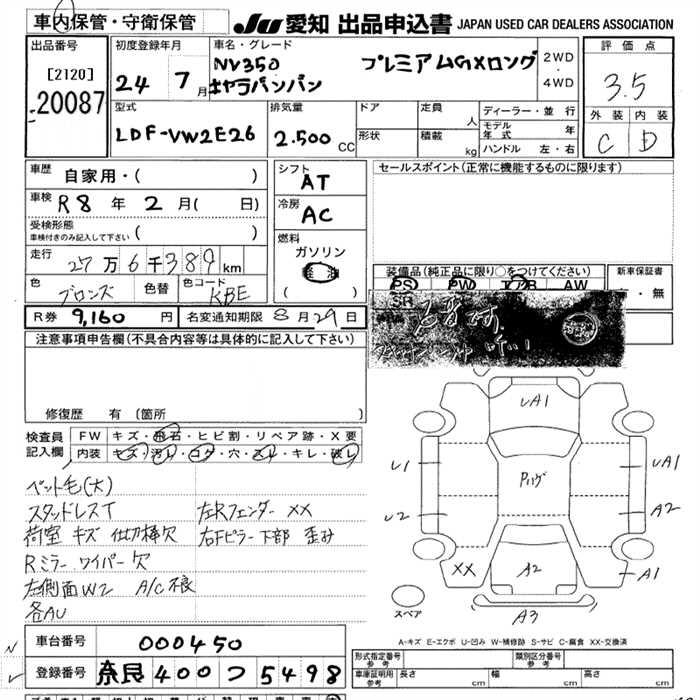 車内保管・守衛保管
JU 愛知 出品申込書 JAPAN USED CAR DEALERS ASSOCIATION
出品番号
[2120]
20087
初度登録年月
24 7月
車名・グレード
NV350 プレミアムGXロング
キャラバンバン
2WD
・
4WD
評価点
3.5
外装 内装
C D
型式
LDF-VW2E26
排気量
2.500 CC
ドア
形状
定員 人
積載 kg
ディーラー・並行
モデル年式 年
ハンドル 左・右
車歴 自家用・( )
車検 R8年 2月( 日)
受検形態
車検付きのみ記入して下さい ( )
走行 27万6千389km
色 ブロンズ 色替 色コード KBE
R券 9,160円 名変通知期限 8月29日
シフト
AT
冷房
AC
燃料
ガソリン
( )
セールスポイント(正常に機能するものに限ります)
装備品(純正品に限り○をつけてください)
PS PW エアB AW
新車保証書
・無
注意事項申告欄(不具合内容等は具体的に記入して下さい)
修復歴 有 〔箇所 〕
検査員
記入欄
FW キズ・飛石・ヒビ割・リペア跡・X要
内装 キズ・汚れ・コゲ・穴・スレ・キレ・破レ
ペット毛(大)
スタッドレスT 左Rフェンダー XX
荷室 キズ 仕切棒欠 右Fピラー 下部 歪み
Rミラー ワイパー 欠
左側面W2 A/C不良
各AU
UA1
U1
Pハゲ
UA1
U2
A2
XX
A2
A1
スペア
A3
A-キズ E-エクボ U-凹み W-補修跡 S-サビ C-腐食 XX-交換済
車台番号 000450
登録番号 奈良 400 つ 5498
形式指定番号
参考
類別区分番号
参考
車庫証明用
参考
長さ cm 幅 cm 高さ cm